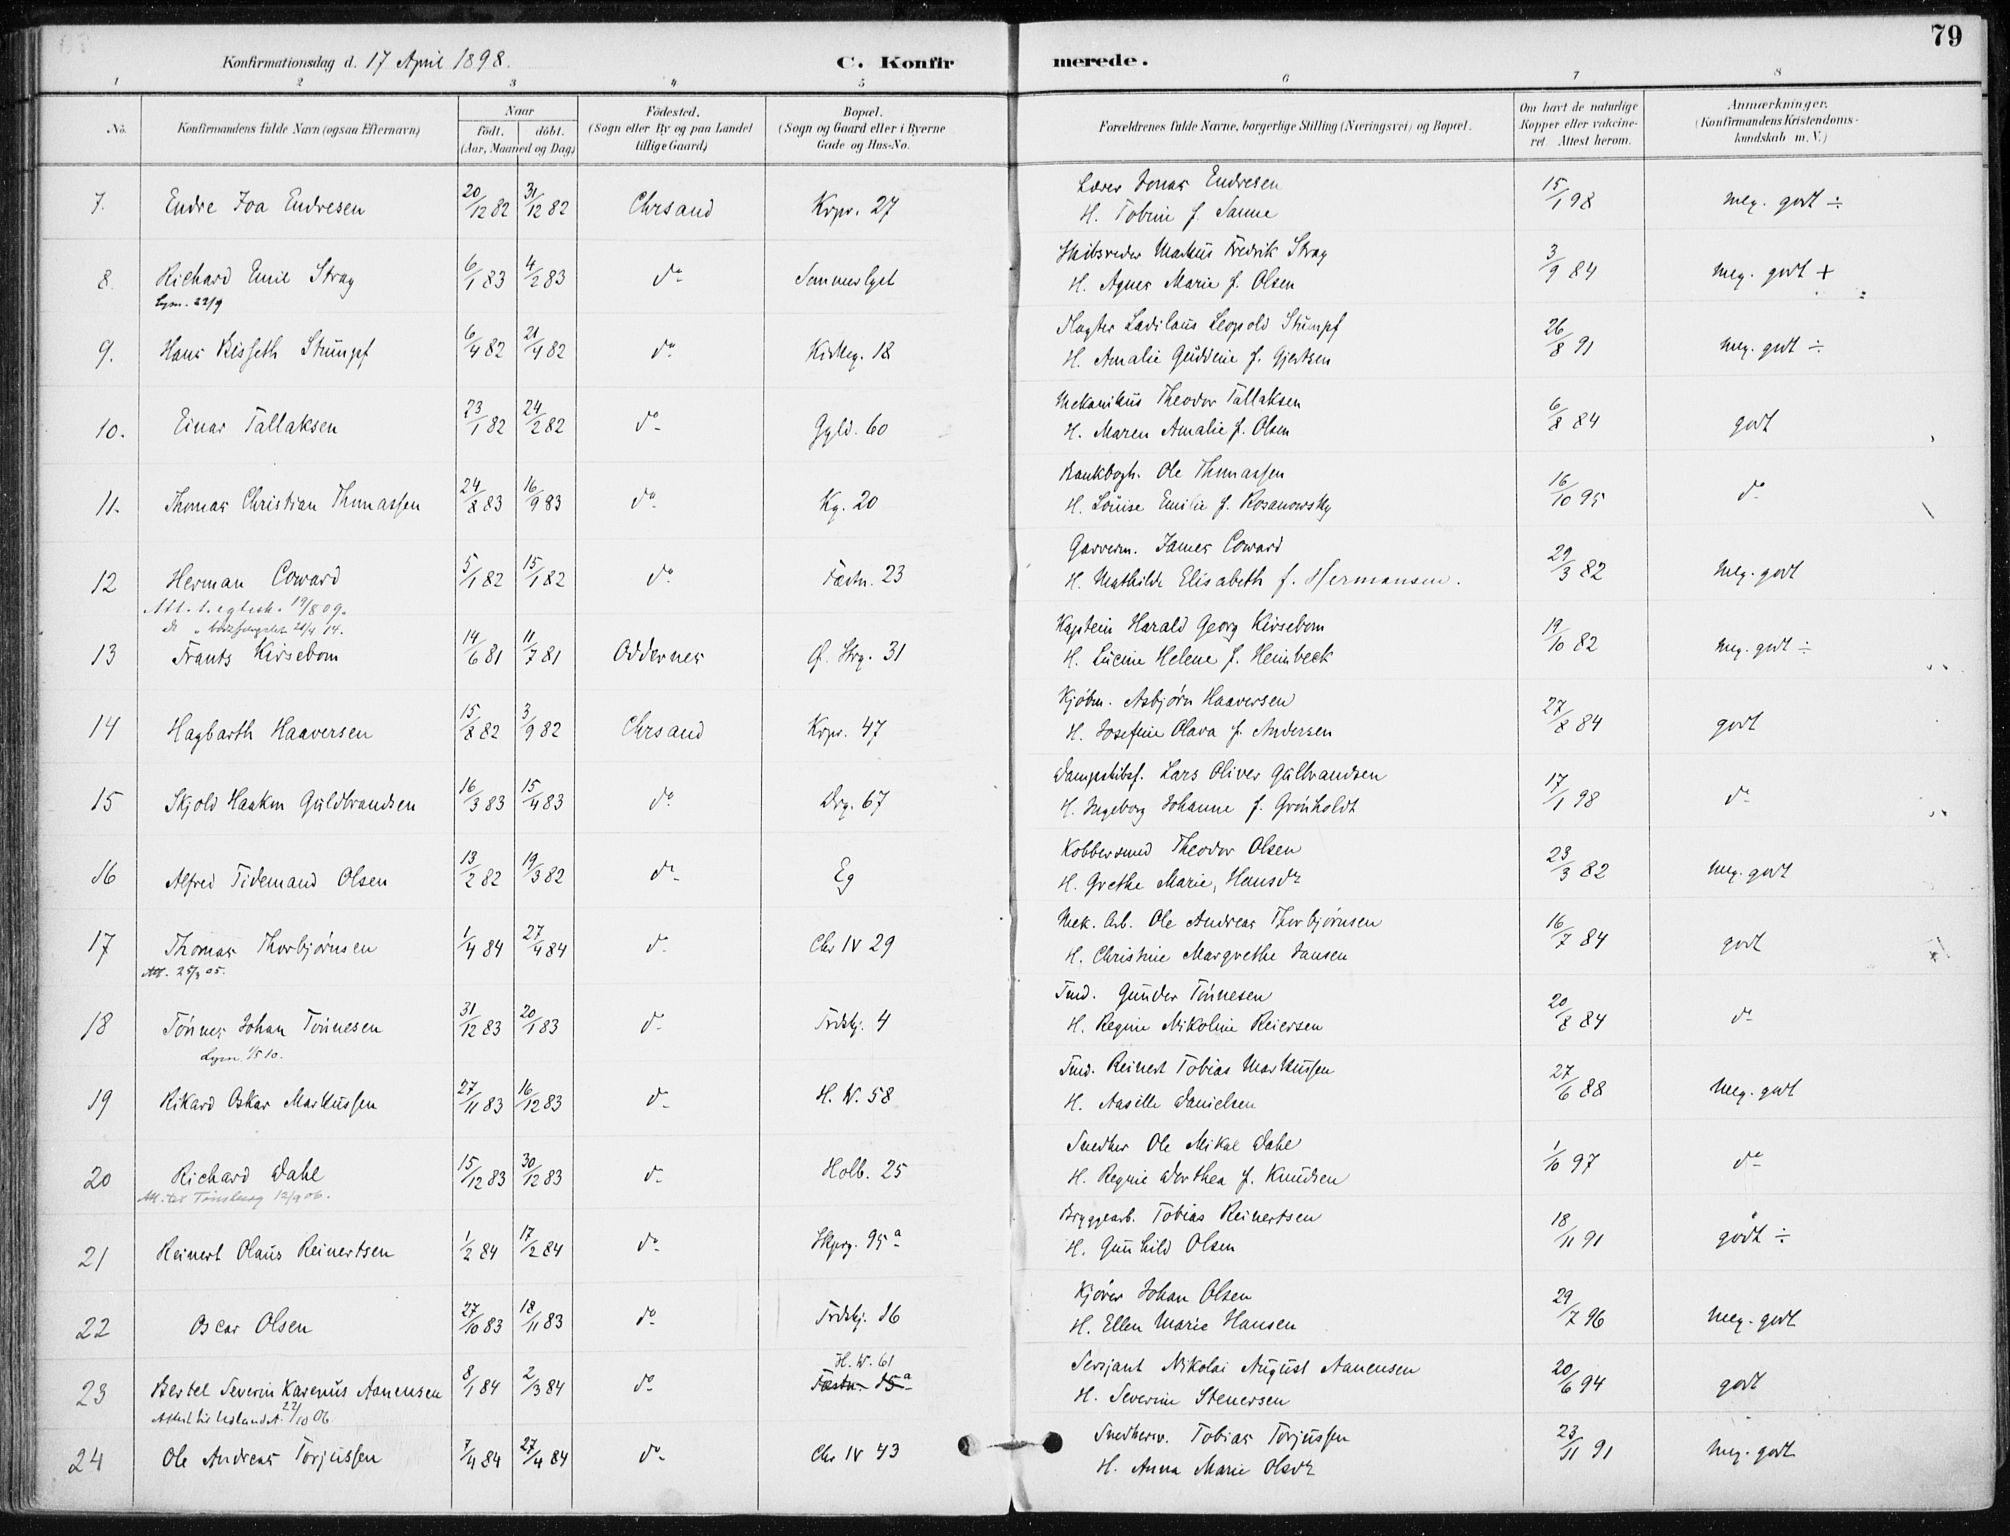 79
Konfirmationsdag d. 17 April 1898.
C. Konfirmerede.
1 2 3 4 5 6 7 8
No. Konfirmandens fulde Navn (ogsaa Efternavn) Naar født. døbt. (Aar, Maaned og Dag) Fødested. (Sogn eller By og paa Landet tillige Gaard) Bopæl. (Sogn og Gaard eller i Byerne Gade og Hus-No. Forældrenes fulde Navne, borgerlige Stilling (Næringsvei) og Bopæl. Om havt de naturlige Kopper eller vakcineret. Attest herom. Anmærkninger. (Konfirmandens Kristendomskundskab m. V.)
7. Endre Foa Endresen 20/12 82 31/12 82 Chrsand Krpr. 27 Lærer Jonas Endresen 15/1 98 meg. godt ÷
H. Tobine f. Sanne
8. Richard Emil Stray 6/1 83 4/2 83 do Sommerlyst Skibsreder Markus Fredrik Stray 3/9 84 meg. godt +
Lysn. 22/9 H. Agnes Marie f. Olsen
9. Hans Bisseth Stumpf 6/4 82 21/4 82 do Kirkeg. 18 Slagter Ladilaus Leopold Stumpf 26/8 91 meg. godt ÷
H. Amalie f. Gjertsen
10. Einar Tallaksen 23/1 82 24/2 82 do Gyld. 60 Mekanikus Theodor Tallaksen 6/8 84 godt
H. Maren Amalie f. Olsen
11. Thomas Christian Thomassen 24/8 83 16/9 83 do Kg. 20 Bankbogh. Ole Thomassen 16/10 95 do
H. Louise Emilie f. Rosanowsky
12 Herman Coward 5/1 82 15/1 82 do Fæstn. 23 Garverm. James Coward 29/3 82 meg. godt
Att. t. egtesk. 19/8 09. H. Mathilde Elisabeth f. Hermansen.
do 21/4 14.
13 Frants Kirsebom 14/6 81 11/7 81 Oddernes Ø. Strg. 31 Kaptein Harald Georg Kirsebom 19/10 82 meg. godt ÷
H. Lucine Helene f. Heimbeck
14 Hagbarth Haaversen 15/8 82 3/9 82 Chrsand Krpr. 47 Kjøbm. Asbjørn Haaversen 27/8 84 godt
H. Josefine Olava f. Andersen
15 Skjold Haakon Guldbrandsen 16/3 83 15/4 83 do Drg. 67 Dampskibsf. Lars Oliver Gulbrandsen 17/1 98 do
H. Ingeborg Johanne f. Grønholdt
16 Alfred Tidemand Olsen 13/2 82 19/3 82 do Eg Kobbersmed Theodor Olsen 23/3 82 meg. godt
H. Grethe Marie, Hansdr
17 Thomas Thorbjørnsen 1/4 84 27/4 84 do Chr IV 29 Mek. Arb. Ole Andreas Thorbjørnsen 16/7 84 godt
Att. 25/3 05. H. Christine Margrethe Jansen
18 Tønnes Johan Tønnesen 31/12 83 20/1 83 do Frdskj. 4 Tmd. Gunder Tønnesen 20/8 84 do
Lysn. 1/5 10. H. Regine Nikoline Reiersen
19 Rikard Oskar Markussen 27/11 83 16/12 83 do H. W. 58 Tmd. Reinert Tobias Markussen 27/6 88 meg. godt
H. Aasille Danielsen
20 Richard Dahl 15/12 83 30/12 83 do Holb. 25 Snedker Ole Mikal Dahl 1/10 97 do
Att. til Tønsberg 12/9 06. H. Regine Dorthea f. Knudsen
21 Reinert Olaus Reinertsen 1/2 84 17/2 84 do Skprg. 95 a Bryggearb. Tobias Reinertsen 18/11 91 godt ÷
H. Gunhild Olsen
22 Oscar Olsen 27/10 83 18/11 83 do Frdskj. 16 Kjører Johan Olsen 29/7 96 meg. godt
H. Ellen Marie Hansen
23 Bertel Severin Karenus Aanensen 8/1 84 2/3 84 do H. W. 61 Fæstn. 15 a Sersjant Nikolai August Aanensen 20/6 94 godt
Attest til Udlandet. 22/10 06. H. Severine Stenersen
24 Ole Andreas Torjussen 7/4 84 27/4 84 do Chr IV 43 Snedkersv. Tobias Torjussen 23/11 91 meg. godt
H. Anna Marie Olsdr